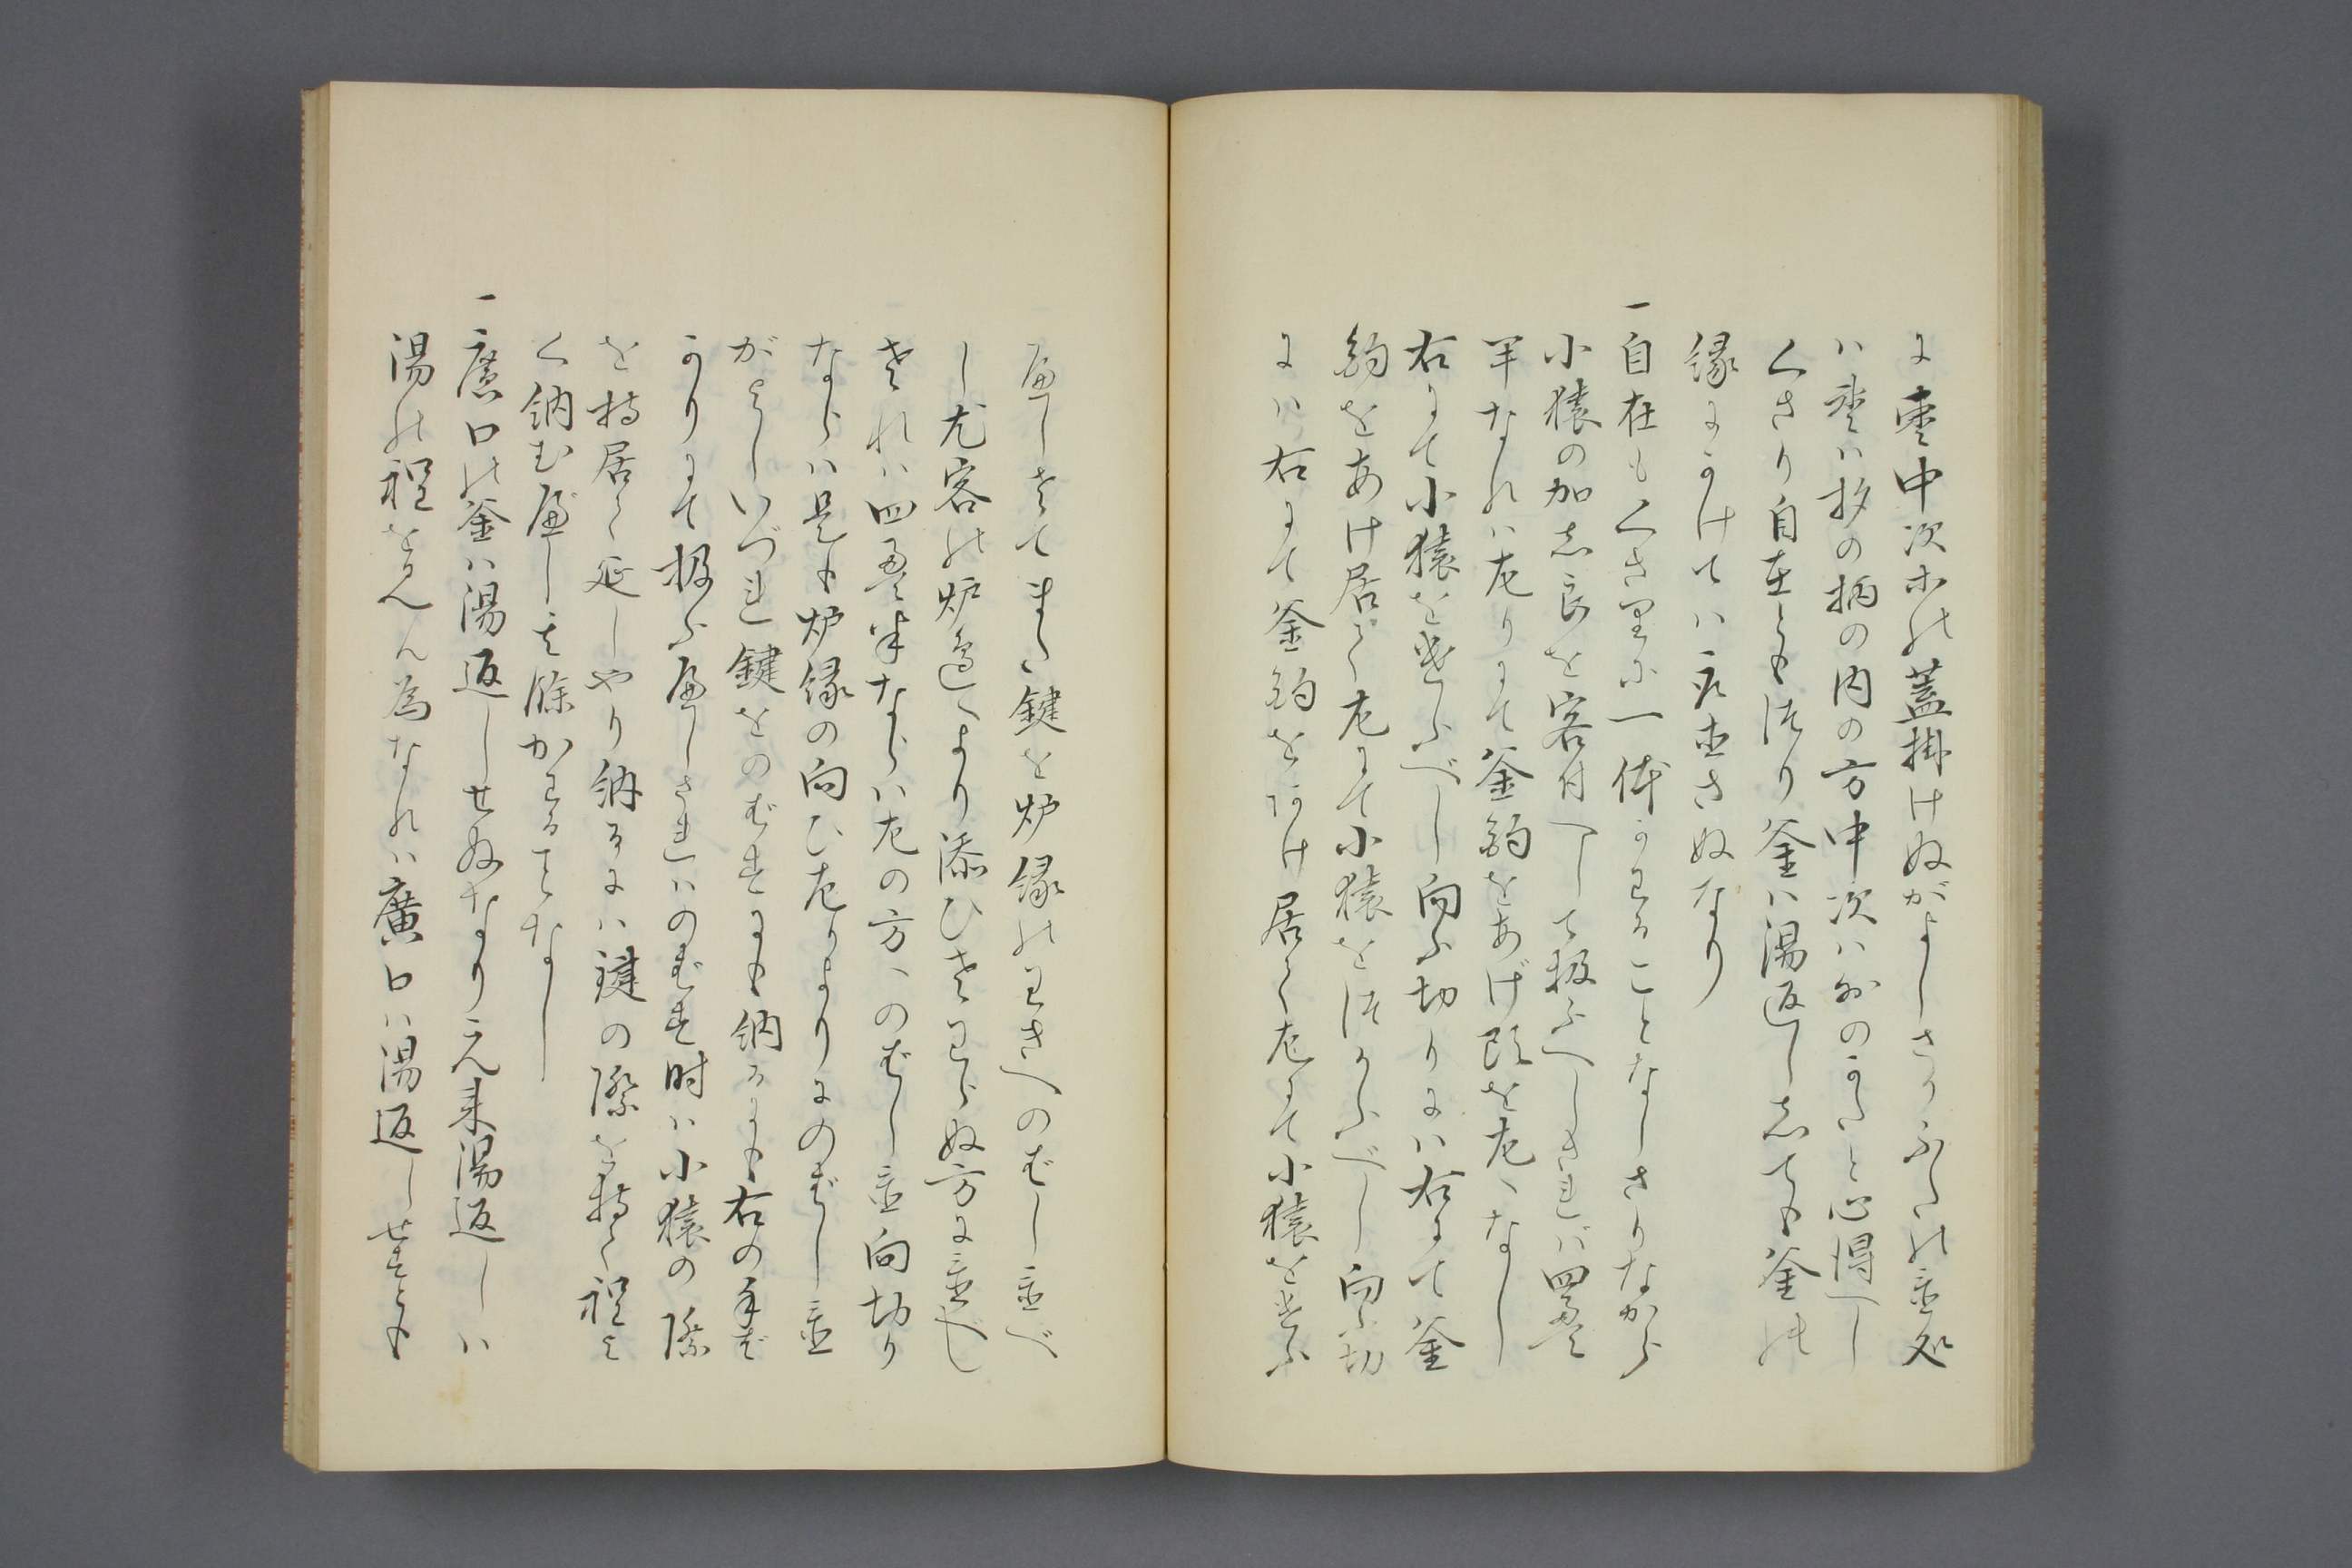 に棗中次ホの蓋掛けぬがよしさてふたの置処
ハ棗ハ杓の柄の内の方中次ハ外のかたと心得べし
くさり自在とも流り釜ハ湯返し志ても釜の
縁にかけてハ置さぬなり
一自在もくさりニ一体かわることなしさりながら
小猿の加志良を客付へして扱ふべしされバ四畳
半なれハ左りにて釜鈎をあげ頭を左へなし
右にて小猿を遣ふべし向ふ切りにハ右にて釜
鈎をあけ居て左にて小猿をつかふべし向ふ切
にハ右にて釜鈎をあけ居て左にて小猿を遣ふ
べしさてまた鍵を炉縁のわきへのばし置べ
し尤客の炉邊へより添ひさわらぬ方に置べし
されハ四畳半ならハ左の方へのばし置向切り
ならハ是も炉縁の向ひ左りよりにのばし置
がよしいづれ鍵をのばすにも納るにも右の手ば
かりにて扱ふべしされハのばす時ハ小猿の際
を持居て延しやり納るにハ鍵の際を持て程よ
く納むべし其餘かわる事なし
一廣口の釜ハ湯返しせぬなり元来湯返しハ
湯の程をみん為なれハ廣口ハ湯返しせずとも